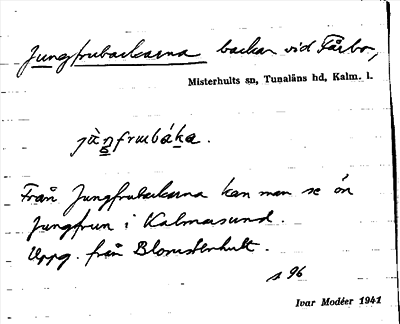 Jungfrubackarna backar vid Fårbo,
Misterhults sn, Tunaläns hd, Kalm. l.
Från Jungfrubackarna kan man se ön
Jungfrun i Kalmarsund.
Uppg. från Blomsterhult.
s 96
Ivar Modéer 1941